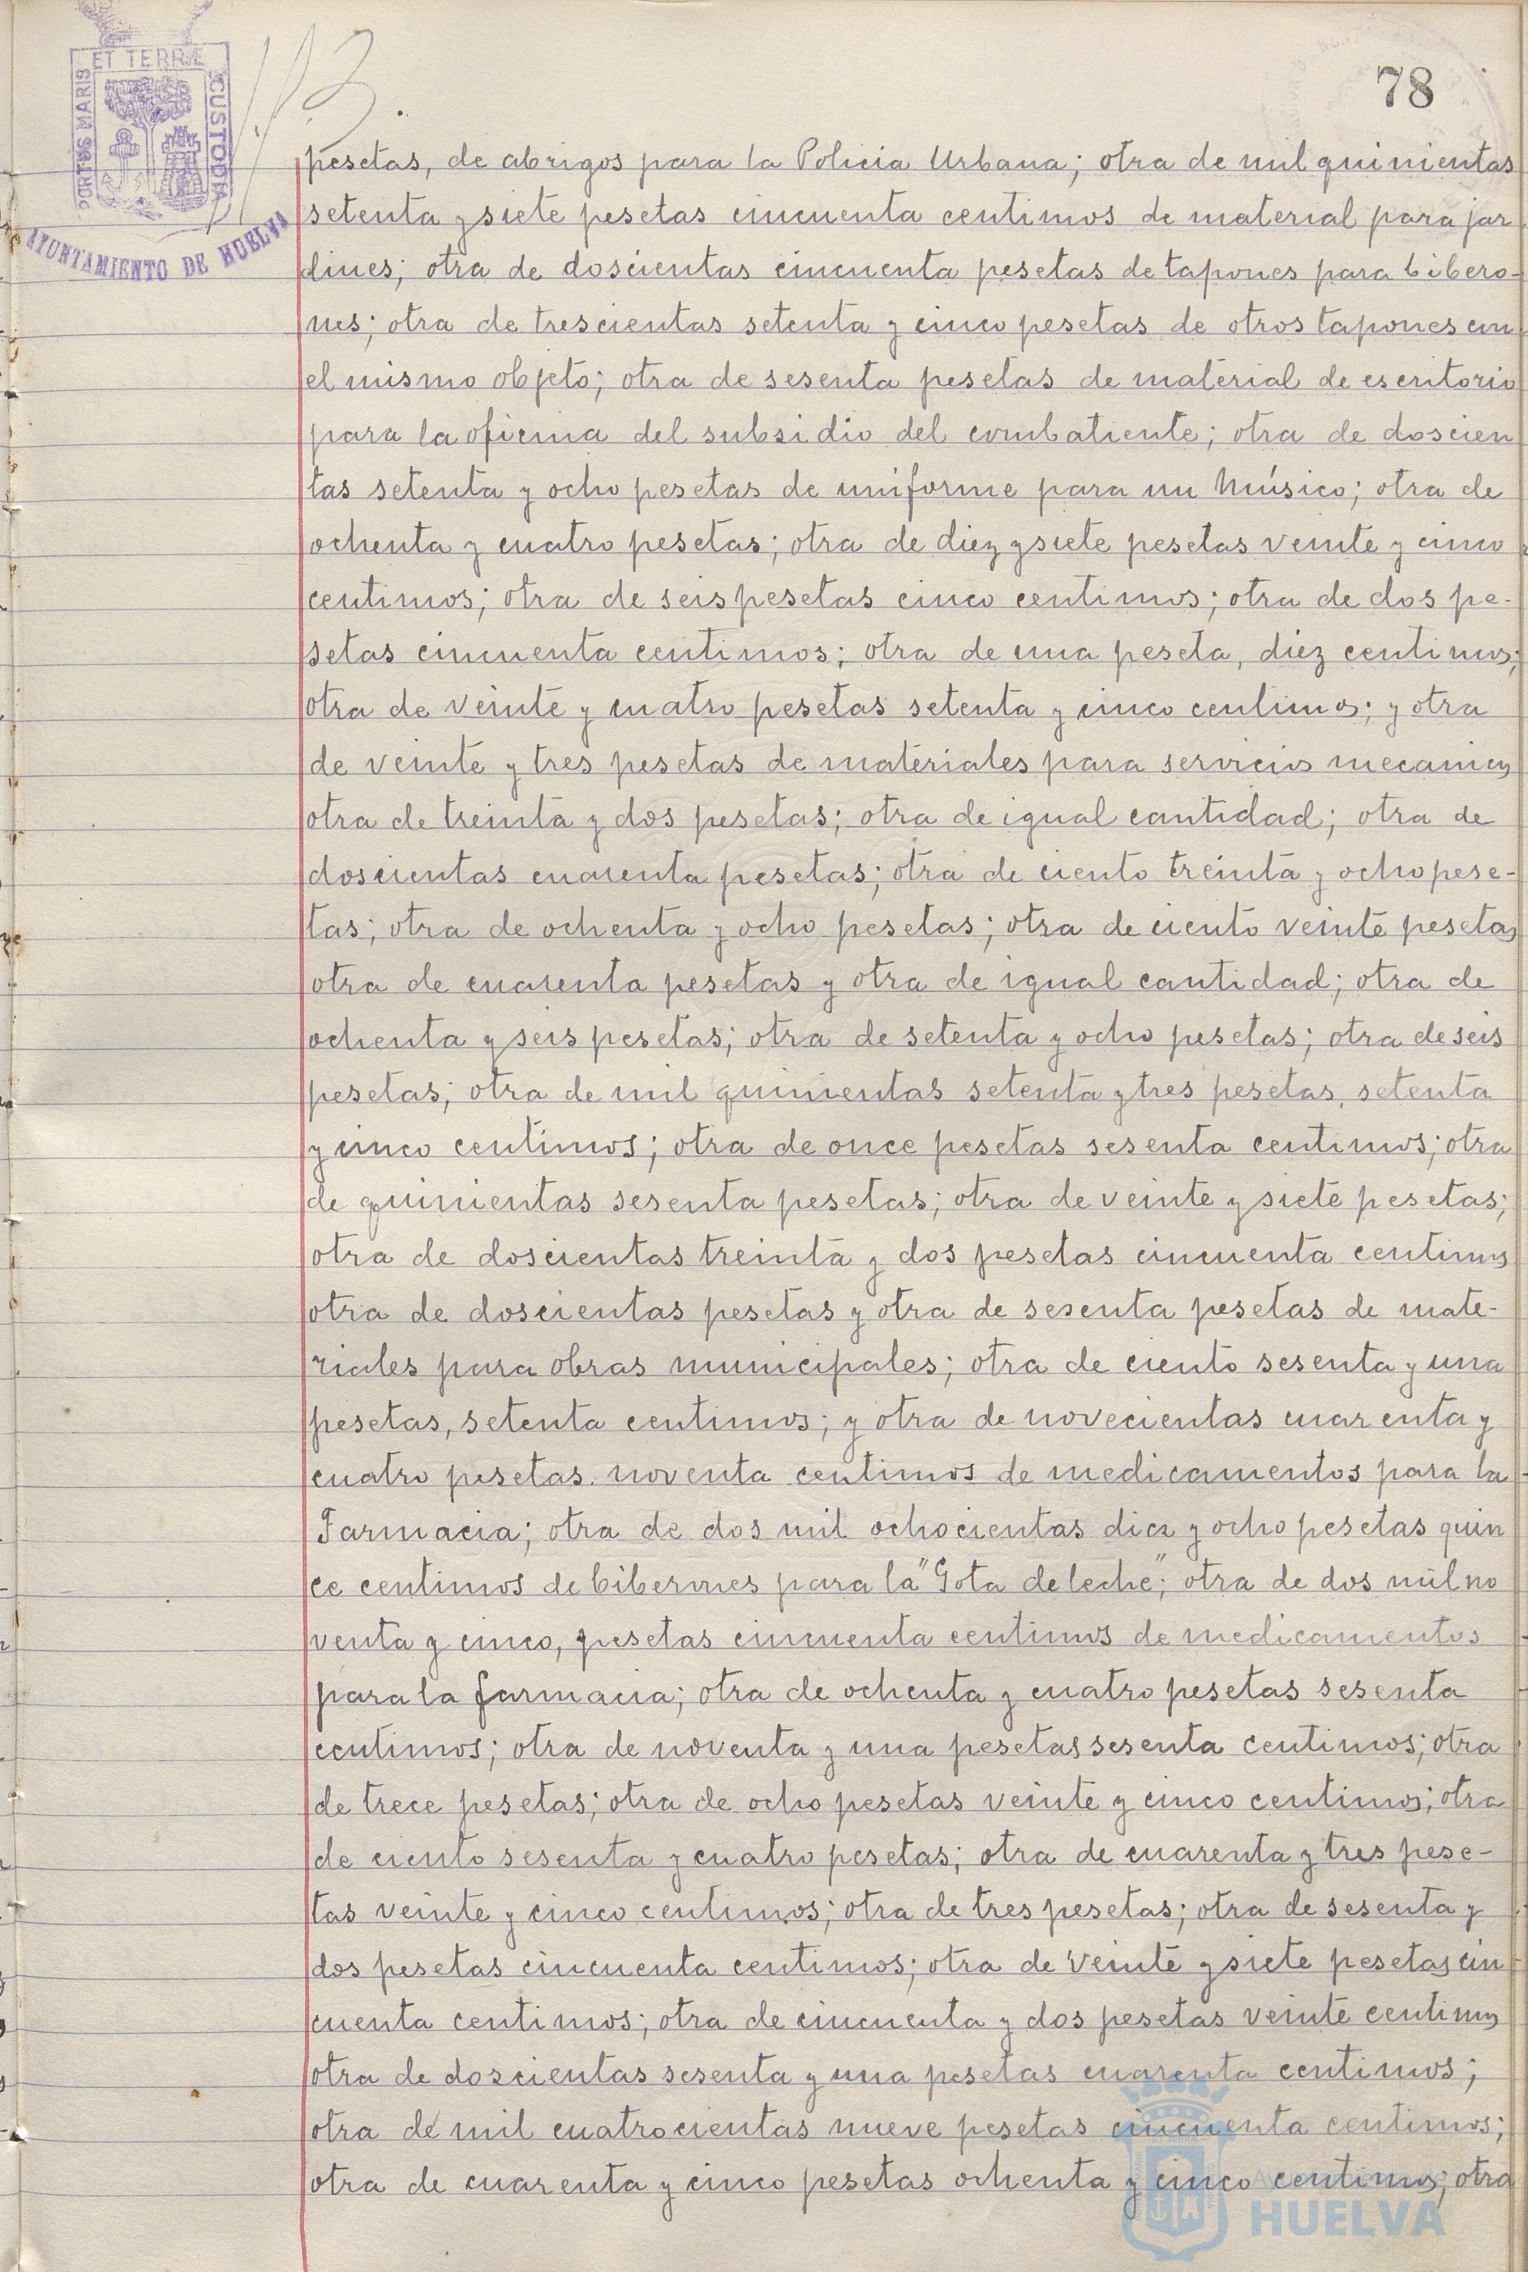 78
PORTUS MARIS ET TERRÆ CUSTODIA
AYUNTAMIENTO DE HUELVA
pesetas, de abrigos para la Policia Urbana; otra de mil quinientas
setenta y siete pesetas cincuenta centimos de material para jar
dines; otra de doscientas cincuenta pesetas de tapones para bibero-
nes; otra de trescientas setenta y cinco pesetas de otros tapones con
el mismo objeto; otra de sesenta pesetas de material de escritorio
para la oficina del subsidio del combatiente; otra de doscien
tas setenta y ocho pesetas de uniforme para un Músico; otra de
ochenta y cuatro pesetas; otra de diez y siete pesetas veinte y cinco
centimos; otra de seis pesetas cinco centimos; otra de dos pe-
setas cincuenta centimos; otra de una peseta, diez centimos;
otra de veinte y cuatro pesetas setenta y cinco centimos; y otra
de veinte y tres pesetas de materiales para servicios mecanicos
otra de treinta y dos pesetas; otra de igual cantidad; otra de
doscientas cuarenta pesetas; otra de ciento treinta y ocho pese-
tas; otra de ochenta y ocho pesetas; otra de ciento veinte pesetas
otra de cuarenta pesetas y otra de igual cantidad; otra de
ochenta y seis pesetas; otra de setenta y ocho pesetas; otra de seis
pesetas; otra de mil quinientas setenta y tres pesetas, setenta
y cinco centimos; otra de once pesetas sesenta centimos; otra
de quinientas sesenta pesetas; otra de veinte y siete pesetas;
otra de doscientas treinta y dos pesetas cincuenta centimos
otra de doscientas pesetas y otra de sesenta pesetas de mate-
riales para obras municipales; otra de ciento sesenta y una
pesetas, setenta centimos; y otra de novecientas cuarenta y
cuatro pesetas noventa centimos de medicamentos para la
Farmacia; otra de dos mil ochocientas diez y ocho pesetas quin
ce centimos de biberones para la "Gota de leche"; otra de dos mil no
venta y cinco, pesetas cincuenta centimos de medicamentos
para la farmacia; otra de ochenta y cuatro pesetas sesenta
centimos; otra de noventa y una pesetas sesenta centimos; otra
de trece pesetas; otra de ocho pesetas veinte y cinco centimos; otra
de ciento sesenta y cuatro pesetas; otra de cuarenta y tres pese-
tas veinte y cinco centimos; otra de tres pesetas; otra de sesenta y
dos pesetas cincuenta centimos; otra de veinte y siete pesetas cin
cuenta centimos; otra de cincuenta y dos pesetas veinte centimos
otra de doscientas sesenta y una pesetas cuarenta centimos;
otra de mil cuatrocientas nueve pesetas cincuenta centimos;
otra de cuarenta y cinco pesetas ochenta y cinco centimos; otra
HUELVA